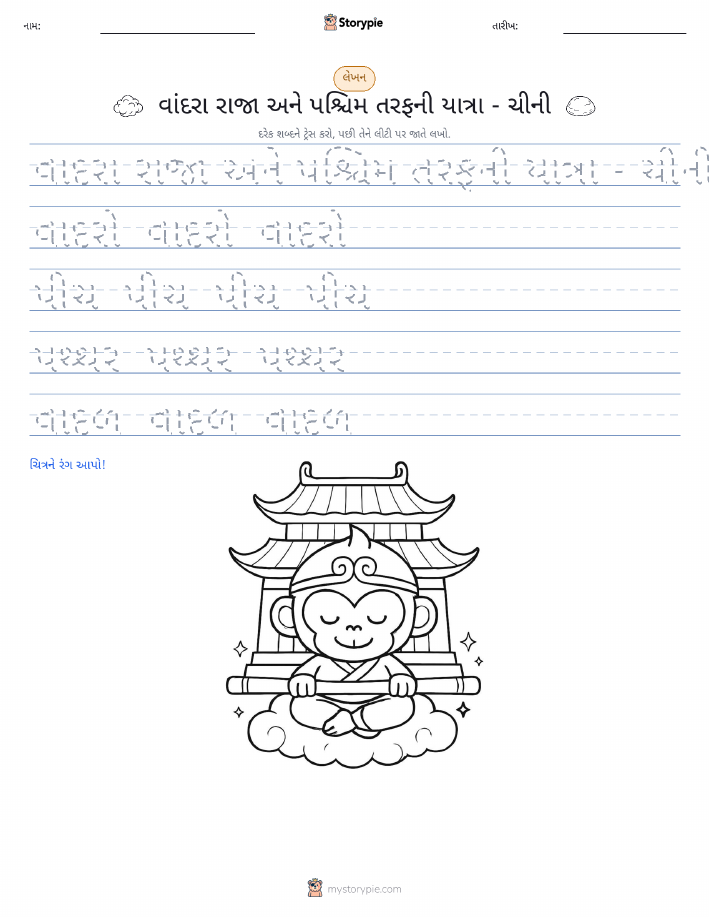 નામ:
Storypie
તારીખ:
લેખન
વાંદરા રાજા અને પશ્ચિમ તરફની યાત્રા - ચીની
દરેક શબ્દને ટ્રેસ કરો, પછી તેને લીટી પર જાતે લખો.
વાંદરા રાજા અને પશ્ચિમ તરફની યાત્રા - ચીની
વાંદરો વાંદરો વાંદરો
પીચ પીચ પીચ પીચ
પથ્થર પથ્થર પથ્થર
વાદળ વાદળ વાદળ
ચિત્રને રંગ આપો!
mystorypie.com